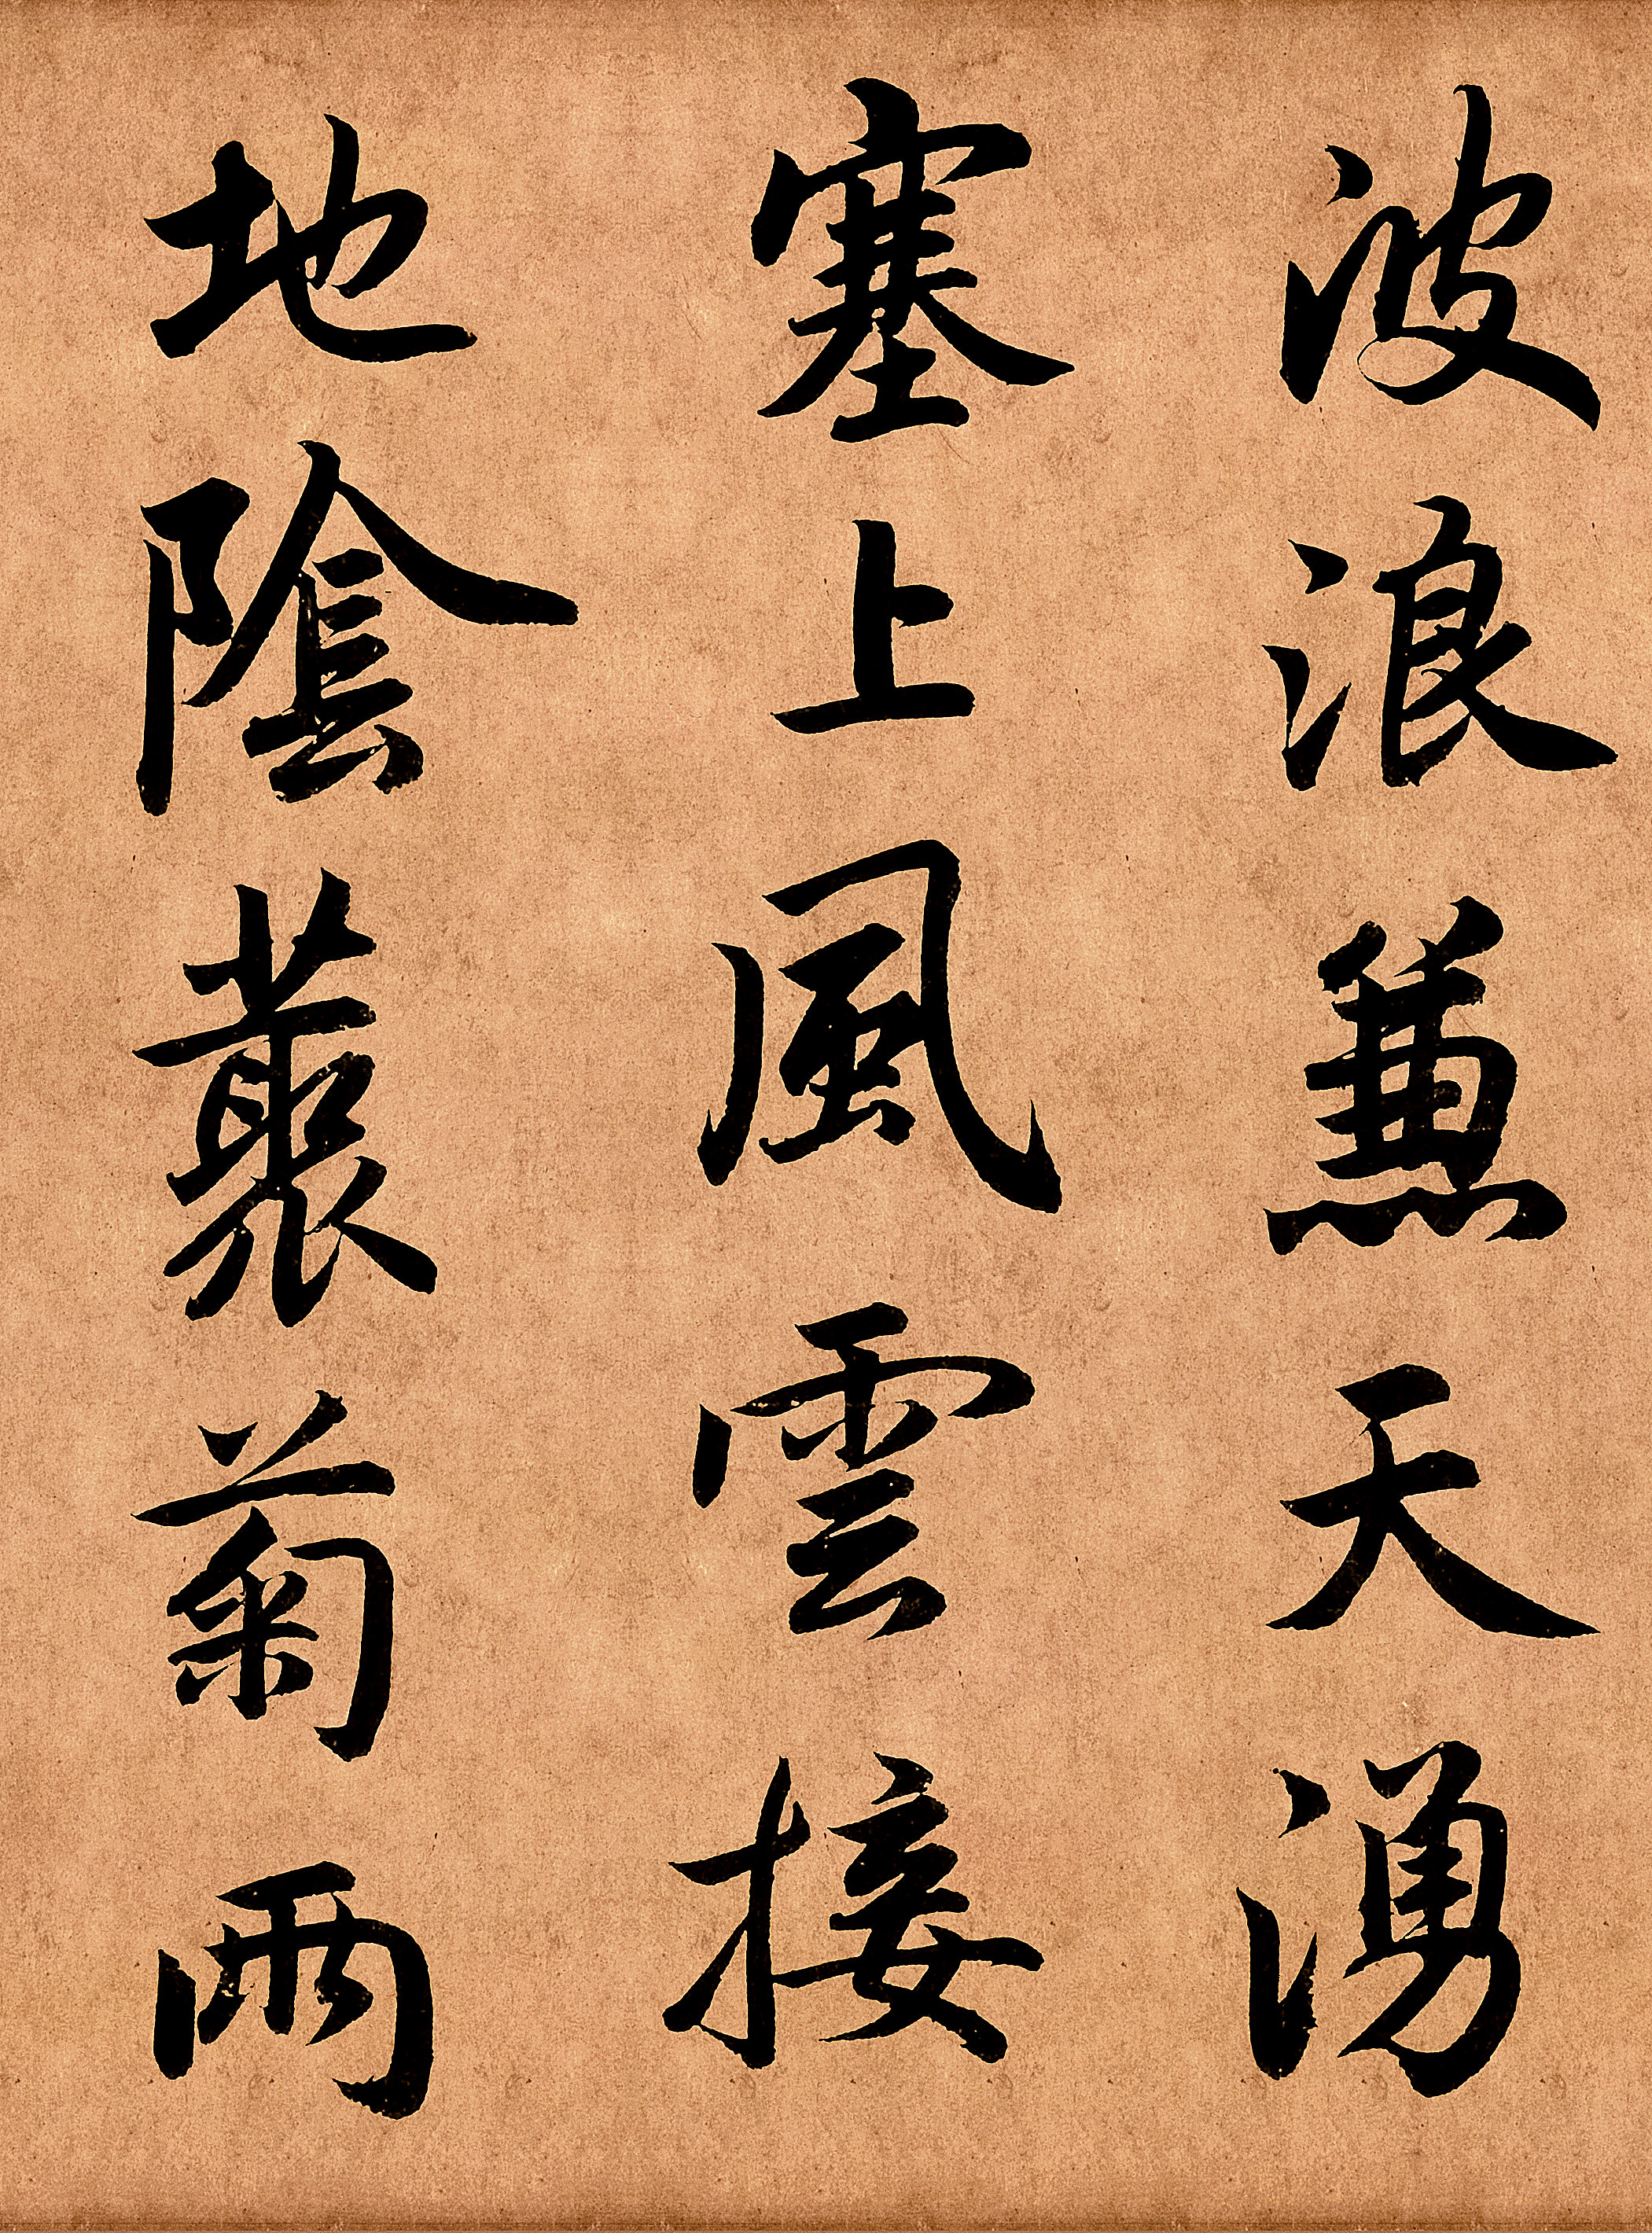 波浪兼天湧
塞上風雲接
地陰叢菊兩